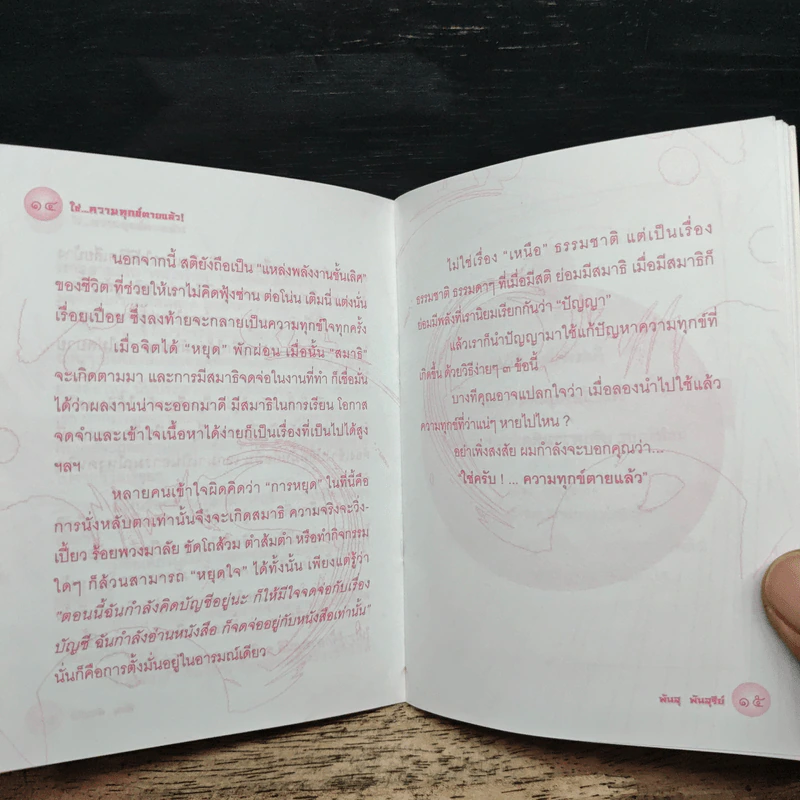 ๑๔ ใช่...ความทุกข์ตายแล้ว!
นอกจากนี้ สติยังถือเป็น "แหล่งพลังงานชั้นเลิศ"
ของชีวิต ที่ช่วยให้เราไม่คิดฟุ้งซ่าน ต่อโน่น เติมนี่ แต่งนั่น
เรื่อยเปื่อย ซึ่งลงท้ายจะกลายเป็นความทุกข์ใจทุกครั้ง
เมื่อจิตได้ "หยุด" พักผ่อน เมื่อนั้น "สมาธิ"
จะเกิดตามมา และการมีสมาธิจดจ่อในงานที่ทำ ก็เชื่อมั่น
ได้ว่าผลงานน่าจะออกมาดี มีสมาธิในการเรียน โอกาส
จดจำและเข้าใจเนื้อหาได้ง่ายก็เป็นเรื่องที่เป็นไปได้สูง
ฯลฯ
หลายคนเข้าใจผิดคิดว่า "การหยุด" ในที่นี้คือ
การนั่งหลับตาเท่านั้นจึงจะเกิดสมาธิ ความจริงจะวิ่ง-
เปี้ยว ร้อยพวงมาลัย ขัดโถส้วม ตำส้มตำ หรือทำกิจกรรม
ใดๆ ก็ล้วนสามารถ "หยุดใจ" ได้ทั้งนั้น เพียงแต่รู้ว่า
"ตอนนี้ฉันกำลังคิดบัญชีอยู่นะ ก็ให้มีใจจดจ่อกับเรื่อง
บัญชี ฉันกำลังอ่านหนังสือ ก็จดจ่ออยู่กับหนังสือเท่านั้น"
นั่นก็คือการตั้งมั่นอยู่ในอารมณ์เดียว
ไม่ใช่เรื่อง "เหนือ" ธรรมชาติ แต่เป็นเรื่อง
ธรรมชาติ ธรรมดาๆ ที่เมื่อมีสติ ย่อมมีสมาธิ เมื่อมีสมาธิก็
ย่อมมีพลังที่เรานิยมเรียกกันว่า "ปัญญา"
แล้วเราก็นำปัญญามาใช้แก้ปัญหาความทุกข์ที่
เกิดขึ้น ด้วยวิธีง่ายๆ ๓ ข้อนี้
บางทีคุณอาจแปลกใจว่า เมื่อลองนำไปใช้แล้ว
ความทุกข์ที่ว่าแน่ๆ หายไปไหน ?
อย่าเพิ่งสงสัย ผมกำลังจะบอกคุณว่า...
"ใช่ครับ ! ... ความทุกข์ตายแล้ว"
พันสุ พันสุรีย์ ๑๕